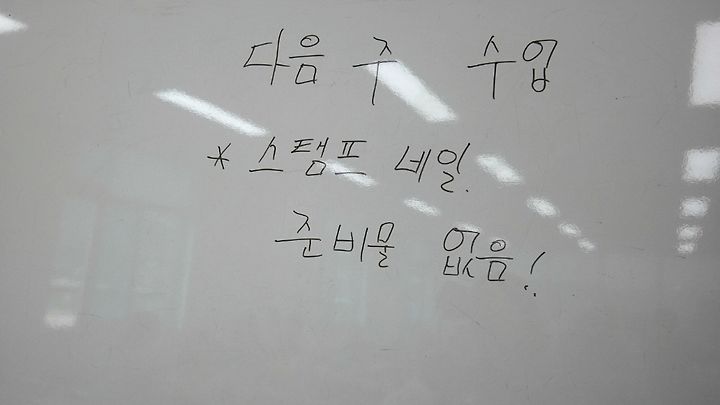 다음 주 수업
* 스탬프 네일.
준비물 없음!